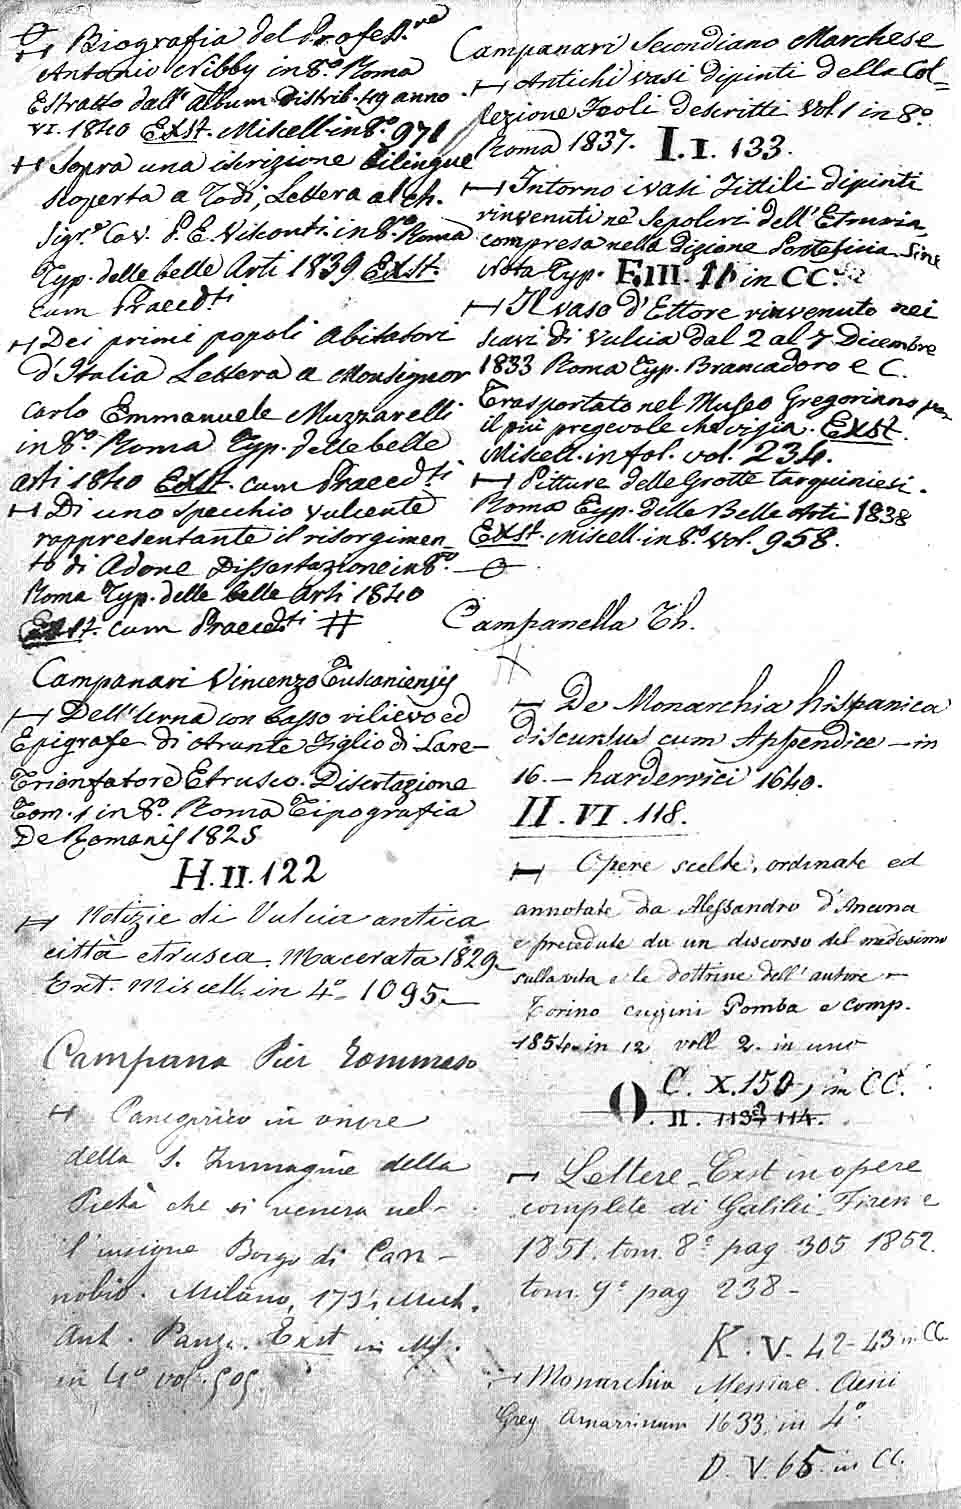 Biografia del Profess.re
Antonio Nibby in 8.o Roma
Estratto dall' album distrib. 49 anno
VI. 1840 Exst. Miscell. in 8.o 971
Sopra una iscrizione bilingue
scoperta a Todi, Lettera al ch.
Sigr.e Cav. P. E. Visconti. in 8.o Roma
Typ. delle belle Arti 1839 Exst.
cum Praecedti
Dei primi popoli abitatori
d'Italia Lettera a Monsignor
Carlo Emmanuele Muzzarelli
in 8.o Roma Typ. delle belle
arti 1840 Exst. cum Praecedti
Di uno specchio vulcente
rappresentante il risorgimen
to di Adone Dissertazione in 8.o
Roma Typ. delle belle Arti 1840
Exst. cum Praecedti #
Campanari Vincenzo Tuscaniensis
Dell' Urna con basso rilievo ed
Epigrafe di Arunte Figlio di Lare
Trionfatore Etrusco. Disertazione
Tom. 1 in 8.o Roma Tipografia
De Romanis 1825
H. II. 122
Notizie di Vulcia antica
città etrusca. Macerata 1829.
Ext. Miscell. in 4.o 1095.
Campana Pier Tommaso
Panegirico in onore
della S. Immagine della
Pietà che si venera nel-
l'insigne Borgo di Can-
nobio. Milano, Mich.
Ant. Panz. Exst in
in 4.o vol. 505.
Campanari Secondiano Marchese
Antichi vasi dipinti della Col=
lezione Feoli descritti Vol. 1 in 8.o
Roma 1837. I. I. 133.
Intorno i vasi Fittili dipinti
rinvenuti ne' Sepolcri dell' Etruria
compresa nella dizione Pontificia. Sine
Nota Typ. F. III. 11 in CC.
Il vaso d'Ettore rinvenuto nei
scavi di Vulcia dal 2 al 7 Dicembre
1833 Roma Typ. Brancadoro e C.
Trasportato nel Museo Gregoriano per
il più pregevole che vi sia. Exst.
Miscell. in fol. vol. 234.
Pitture delle Grotte tarquiniesi.
Roma Typ. delle Belle Arti 1838
Exst. Miscell. in 8.o vol. 958.
Campanella Th.
De Monarchia hispanica
discursus cum Appendice - in
16. - hardervici 1640.
II. VI. 118.
Opere scelte, ordinate ed
annotate da Alessandro d'Ancona
e precedute da un discorso del medesimo
sulla vita e le dottrine dell' autore -
Torino cugini Pomba e comp.
1854. in 12 voll 2. in uno
C. X. 150, in CC.
O. II. 113 114.
Lettere Exst in opere
complete di Galilei. Firenze
1851. tom. 8.o pag 305 1852.
tom. 9.o pag 238 -
K. V. 42-43 in CC.
Monarchia Messiae. Aesii
Greg Arnazzinum 1633 in 4.o
D. V. 65. in CC.